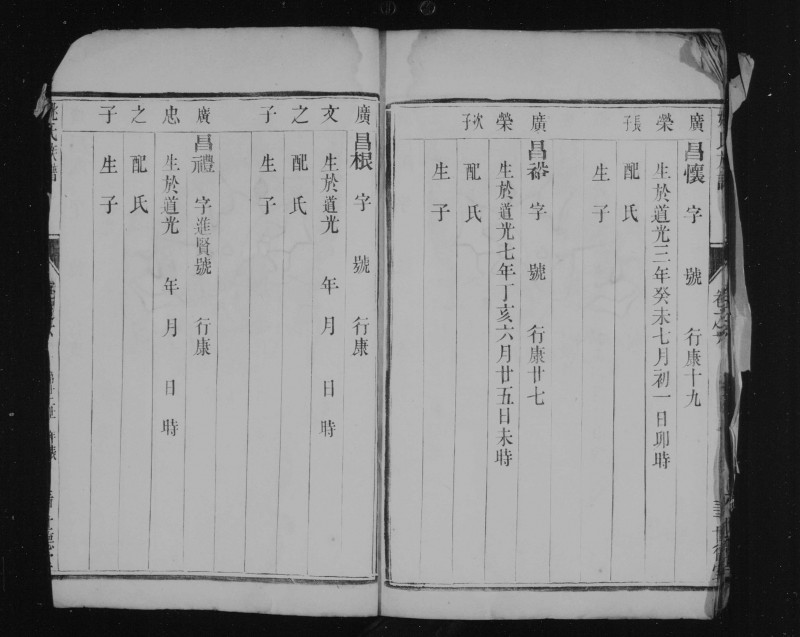 廣昌懷 字 號 行康十九
榮 生於道光三年癸未七月初一日卯時
長子 配氏
生子
廣昌裕 字 號 行康廿七
榮 生於道光七年丁亥六月廿五日未時
次子 配氏
生子
廣昌根 字 號 行康
文 生於道光 年 月 日 時
之 配氏
子 生子
廣昌禮 字進賢號 行康
忠 生於道光 年 月 日 時
之 配氏
子 生子
氏族譜